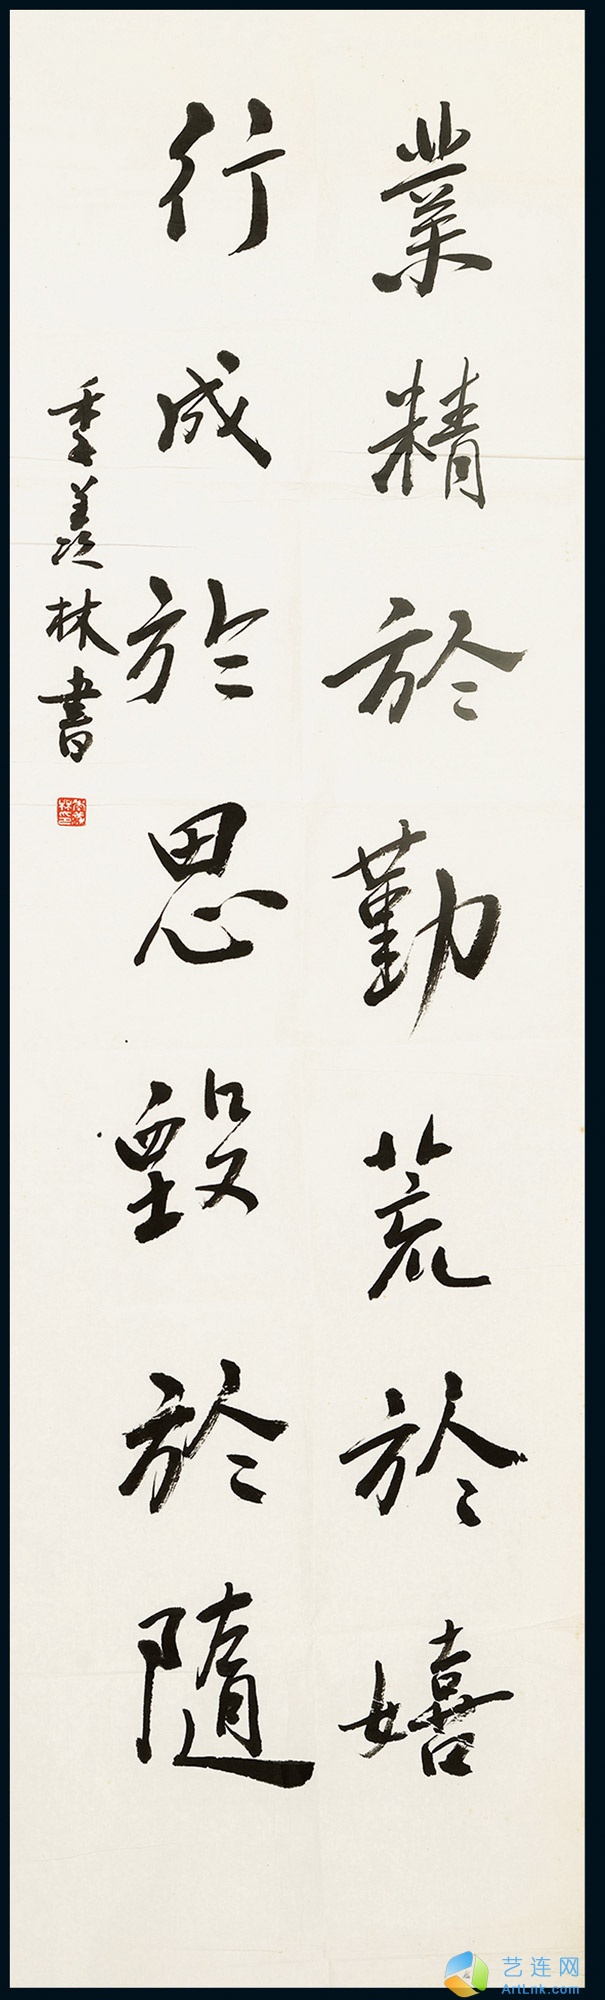 業精於勤荒於嬉
行成於思毀於隨
季羡林書
艺连网
ArtLnk.com